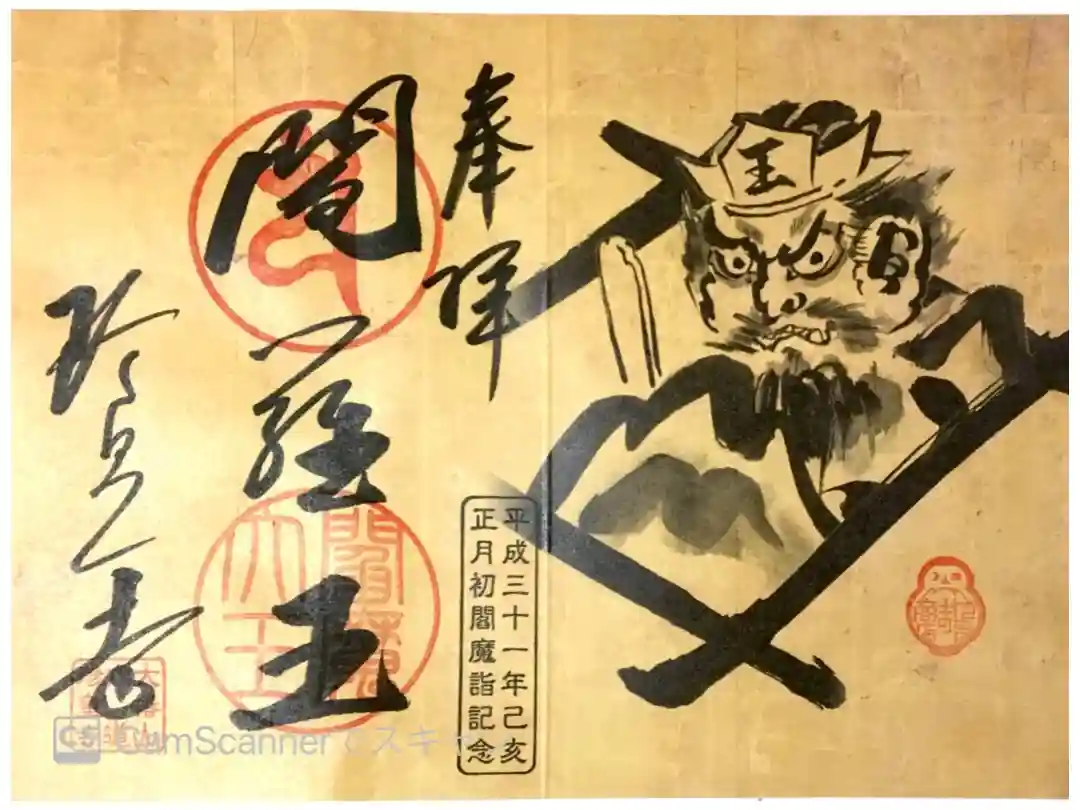 王
奉拝
閻羅王
珍皇寺
閻魔
大王
平成三十一年己亥
正月初閻魔詣記念
CS CamScanner でスキャ